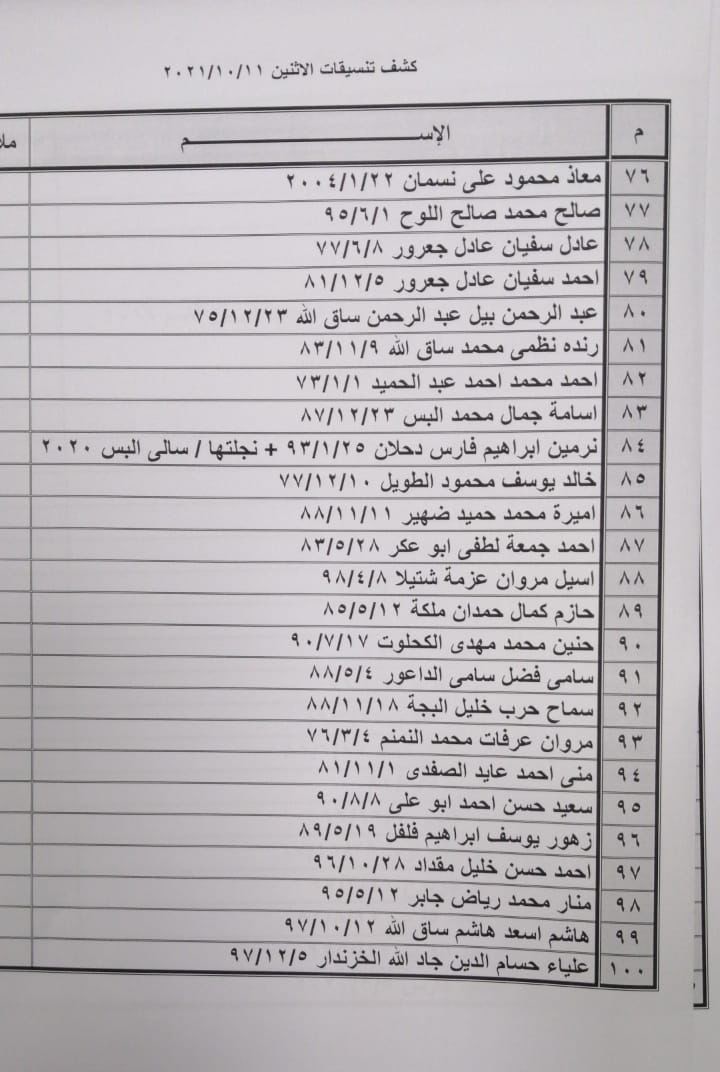 كشف تنسيقات الاثنين ٢٠٢١/١٠/١١
م الإســـــــــــــم ملا
٧٦ معاذ محمود على نسمان ٢٠٠٤/١/٢٢
٧٧ صالح محمد صالح اللوح ٩٥/٦/١
٧٨ عادل سفيان عادل جعرور ٧٧/٦/٨
٧٩ احمد سفيان عادل جعرور ٨١/١٢/٥
٨٠ عبد الرحمن بيل عبد الرحمن ساق الله ٧٥/١٢/٢٣
٨١ رنده نظمى محمد ساق الله ٨٣/١١/٩
٨٢ احمد محمد احمد عبد الحميد ٧٣/١/١
٨٣ اسامة جمال محمد البس ٨٧/١٢/٢٣
٨٤ نرمين ابراهيم فارس دحلان ٩٣/١/٢٥ + نجلتها / سالى البس ٢٠٢٠
٨٥ خالد يوسف محمود الطويل ٧٧/١٢/١٠
٨٦ اميرة محمد حميد ضهير ٨٨/١١/١١
٨٧ احمد جمعة لطفى ابو عكر ٨٣/٥/٢٨
٨٨ اسيل مروان عزمة شتيلا ٩٨/٤/٨
٨٩ حازم كمال حمدان ملكة ٨٥/٥/١٢
٩٠ حنين محمد مهدى الكحلوت ٩٠/٧/١٧
٩١ سامى فضل سامى الداعور ٨٨/٥/٤
٩٢ سماح حرب خليل البجة ٨٨/١١/١٨
٩٣ مروان عرفات محمد النمنم ٧٦/٣/٤
٩٤ منى احمد عايد الصفدى ٨١/١١/١
٩٥ سعيد حسن احمد ابو على ٩٠/٨/٨
٩٦ زهور يوسف ابراهيم فلفل ٨٩/٥/١٩
٩٧ احمد حسن خليل مقداد ٩٦/١٠/٢٨
٩٨ منار محمد رياض جابر ٩٥/٥/١٢
٩٩ هاشم اسعد هاشم ساق الله ٩٧/١٠/١٢
١٠٠ علياء حسام الدين جاد الله الخزندار ٩٧/١٢/٥